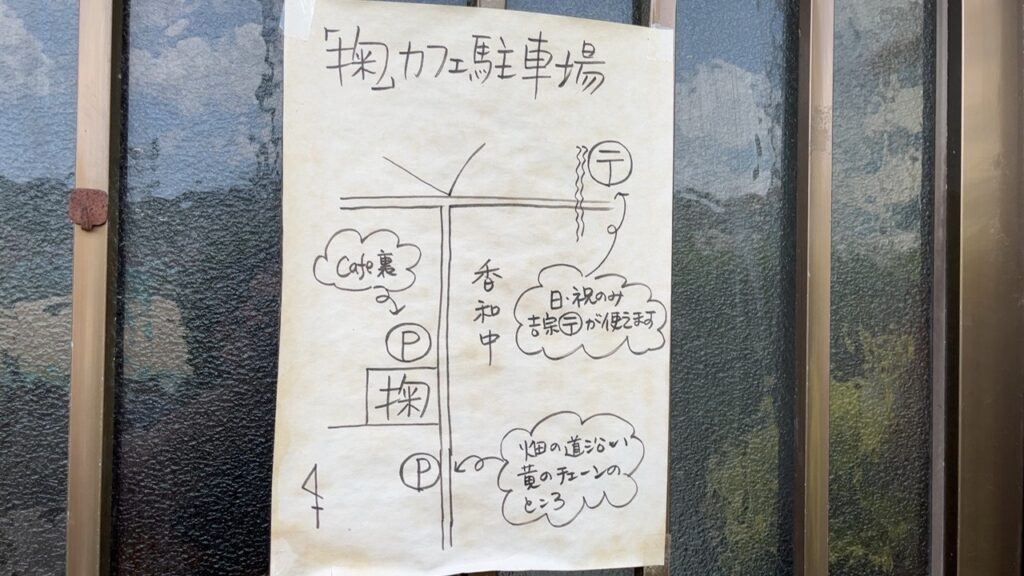 「掬」カフェ駐車場
〒
Cafe裏
香和中
日・祝のみ
吉宗〒が使えます
P
掬
畑の道沿い
黄のチェーンの
ところ
P